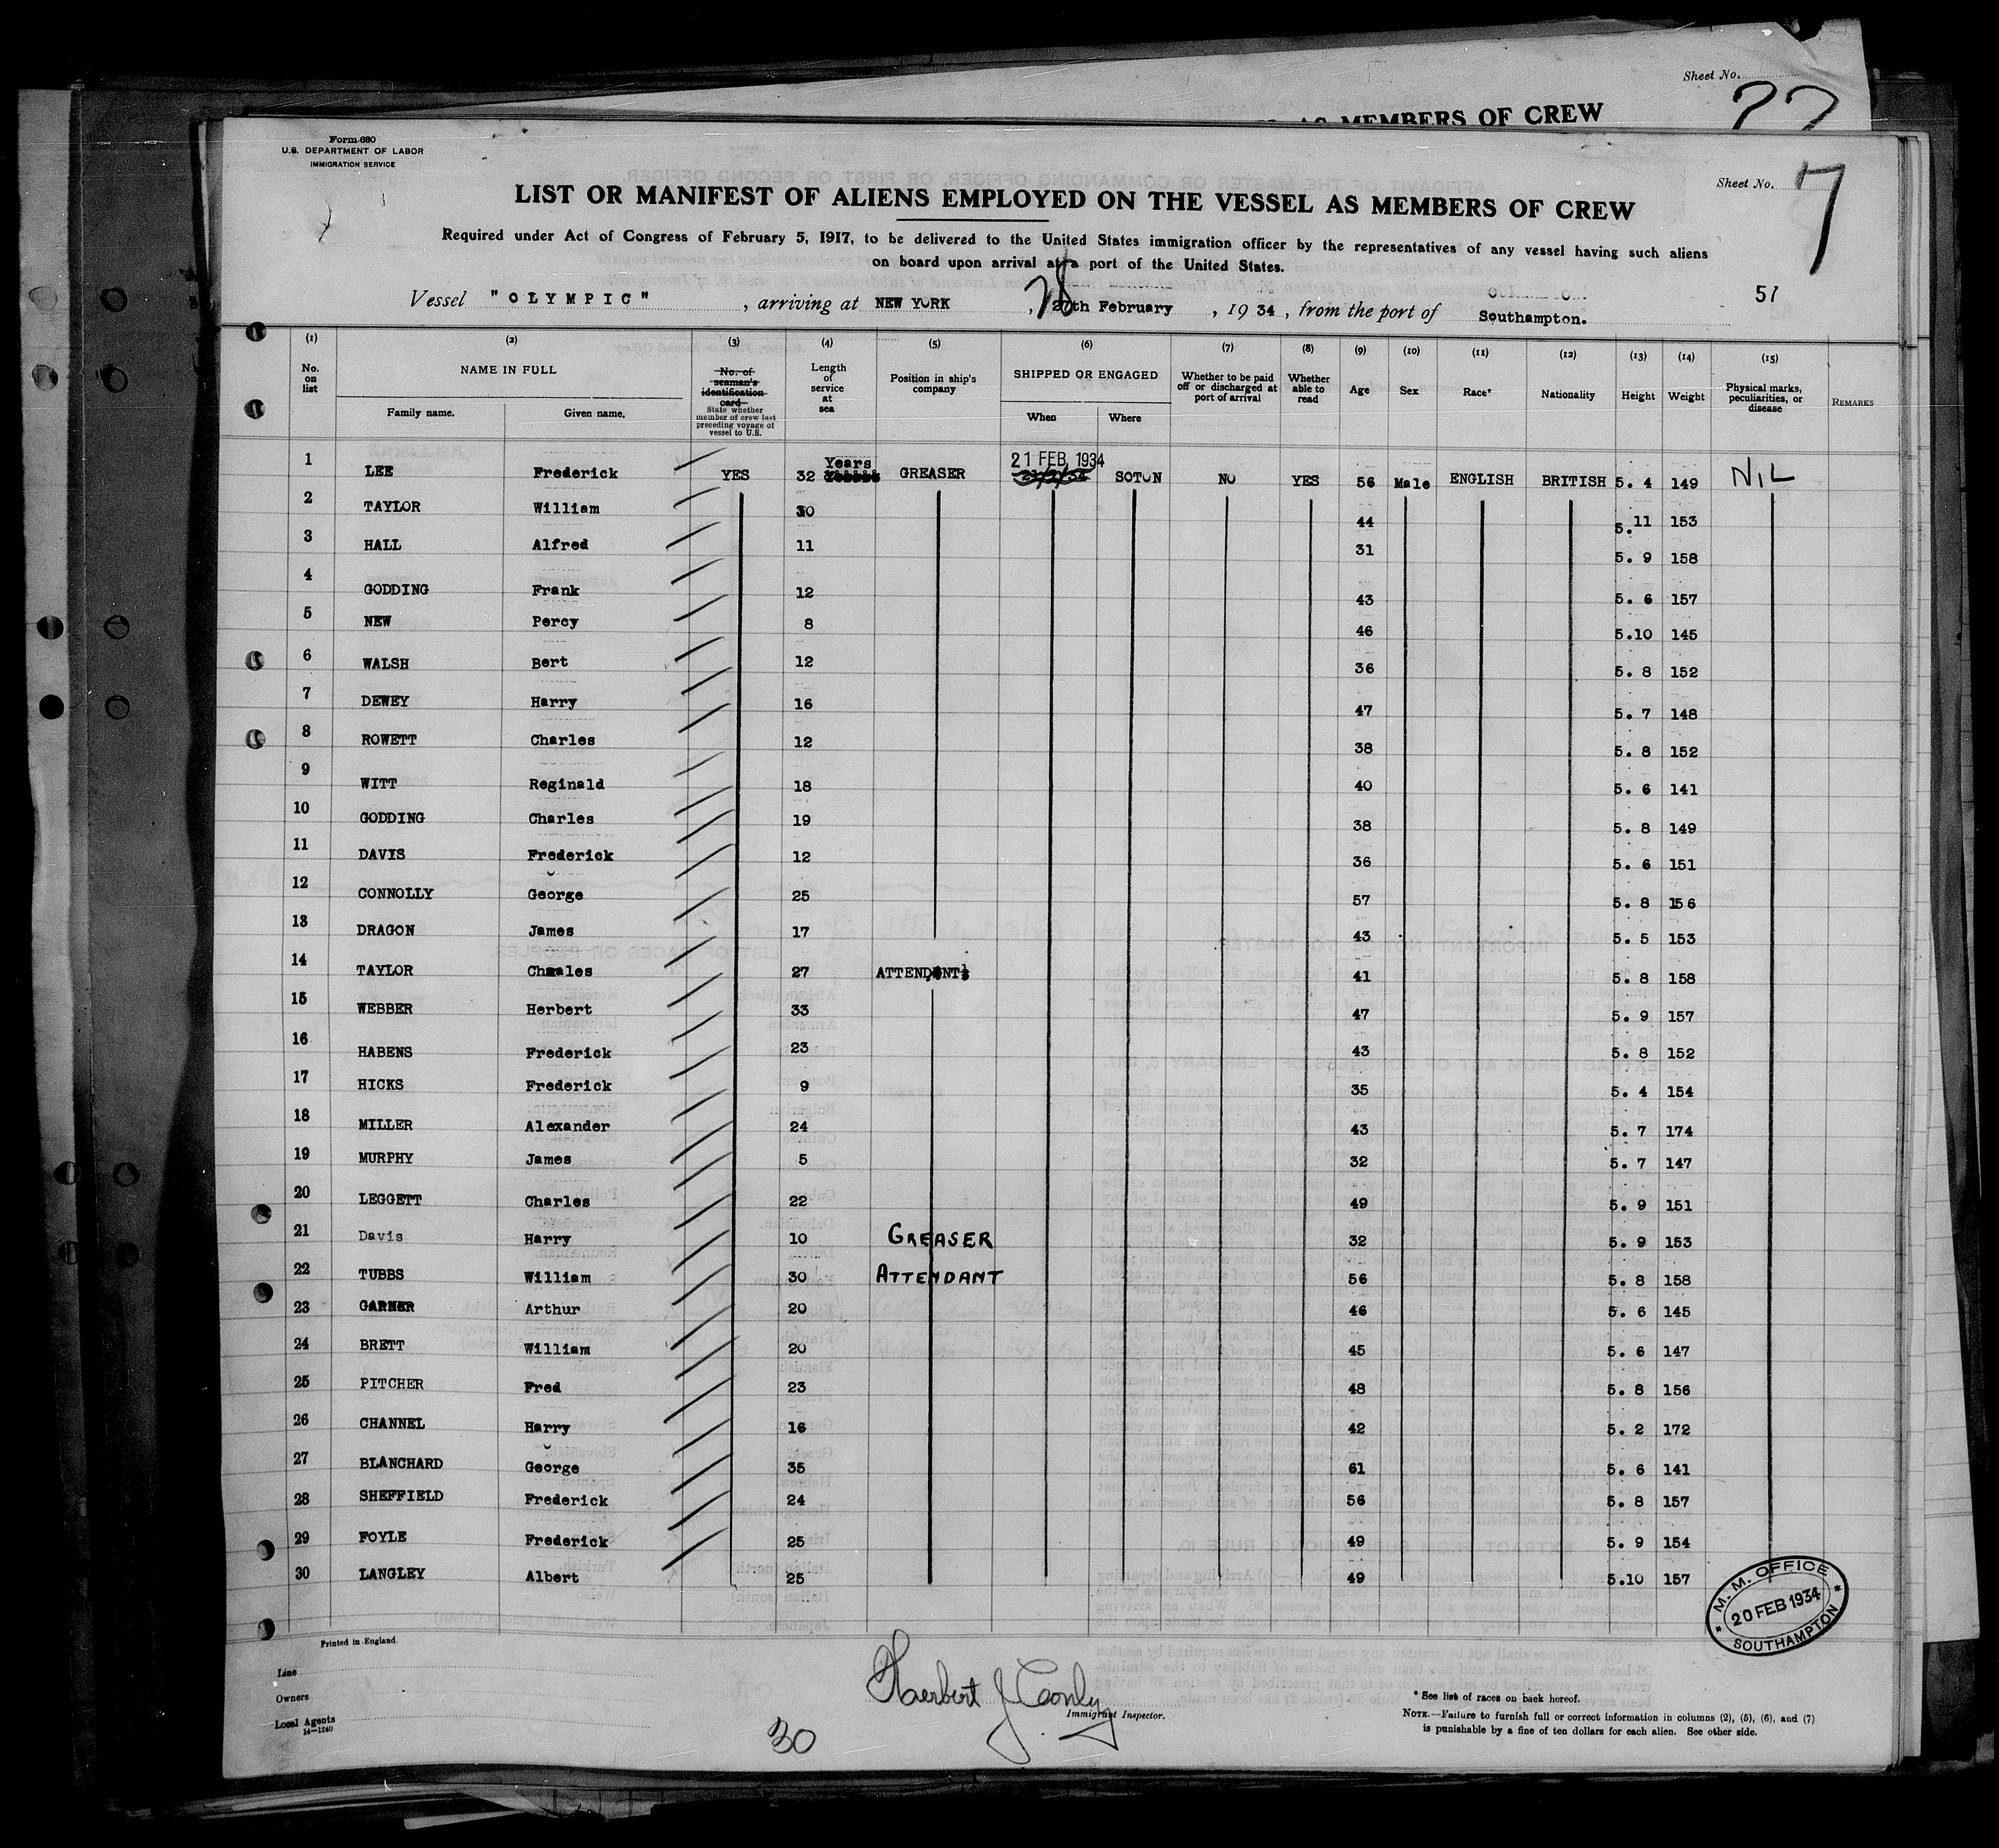 Sheet No.
AS MEMBERS OF CREW
Form 680
U.S. DEPARTMENT OF LABOR
IMMIGRATION SERVICE
Sheet No. 7
LIST OR MANIFEST OF ALIENS EMPLOYED ON THE VESSEL AS MEMBERS OF CREW
Required under Act of Congress of February 5, 1917, to be delivered to the United States immigration officer by the representatives of any vessel having such aliens
on board upon arrival at a port of the United States.
Vessel "OLYMPIC", arriving at NEW YORK, 28 27th February, 1934, from the port of Southampton.
51
(1) (2) (3) (4) (5) (6) (7) (8) (9) (10) (11) (12) (13) (14) (15)
No. on list
NAME IN FULL
Family name. Given name.
No. of seaman's identification card
State whether member of crew last preceding voyage of vessel to U.S.
Length of service at sea
Position in ship's company
SHIPPED OR ENGAGED
When Where
Whether to be paid off or discharged at port of arrival
Whether able to read
Age
Sex
Race*
Nationality
Height
Weight
Physical marks, peculiarities, or disease
REMARKS
1 LEE Frederick YES 32 Years GREASER 21 FEB. 1934 SOTON NO YES 56 Male ENGLISH BRITISH 5. 4 149 NIL
2 TAYLOR William 30 44 5.11 153
3 HALL Alfred 11 31 5. 9 158
4 GODDING Frank 12 43 5. 6 157
5 NEW Percy 8 46 5.10 145
6 WALSH Bert 12 36 5. 8 152
7 DEWEY Harry 16 47 5. 7 148
8 ROWETT Charles 12 38 5. 8 152
9 WITT Reginald 18 40 5. 6 141
10 GODDING Charles 19 38 5. 8 149
11 DAVIS Frederick 12 36 5. 6 151
12 CONNOLLY George 25 57 5. 8 156
13 DRAGON James 17 43 5. 5 153
14 TAYLOR Chaales 27 ATTENDANT 41 5. 8 158
15 WEBBER Herbert 33 47 5. 9 157
16 HABENS Frederick 23 43 5. 8 152
17 HICKS Frederick 9 35 5. 4 154
18 MILLER Alexander 24 43 5. 7 174
19 MURPHY James 5 32 5. 7 147
20 LEGGETT Charles 22 49 5. 9 151
21 Davis Harry 10 GREASER 32 5. 9 153
22 TUBBS William 30 ATTENDANT 56 5. 8 158
23 GARNER Arthur 20 46 5. 6 145
24 BRETT William 20 45 5. 6 147
25 PITCHER Fred 23 48 5. 8 156
26 CHANNEL Harry 16 42 5. 2 172
27 BLANCHARD George 35 61 5. 6 141
28 SHEFFIELD Frederick 24 56 5. 8 157
29 FOYLE Frederick 25 49 5. 9 154
30 LANGLEY Albert 25 49 5.10 157
M. M. OFFICE
20 FEB 1934
SOUTHAMPTON
Printed in England
Line
Owners
Local Agents
14-1240
30
Herbert J Conly
Immigrant Inspector.
* See list of races on back hereof.
NOTE.—Failure to furnish full or correct information in columns (2), (5), (6), and (7)
is punishable by a fine of ten dollars for each alien. See other side.